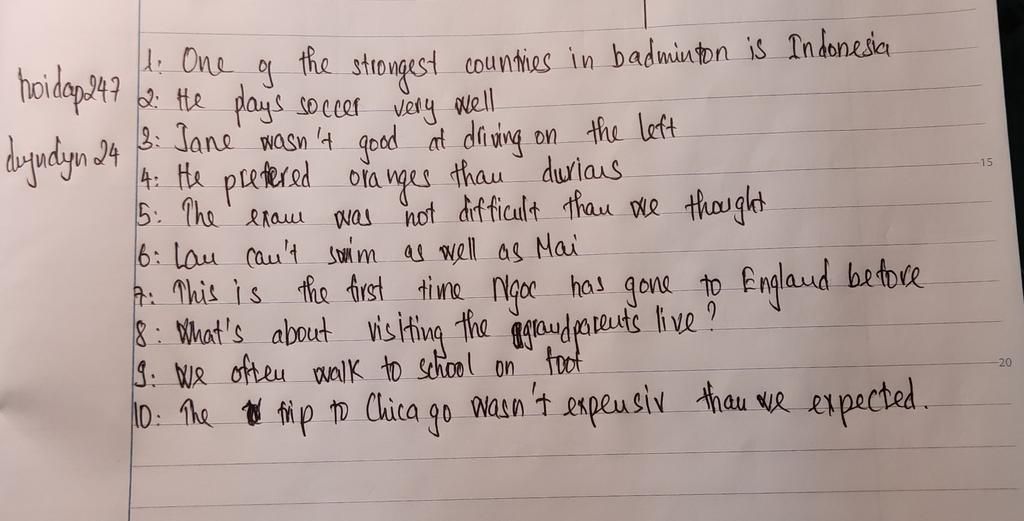 hoidap247
duyudyn24
1: One of the strongest countries in badminton is Indonesia
2: He plays soccer very well
3: Jane wasn't good at driving on the left
4: He prefered oranges than durians
5: The exam was not difficult than we thought
6: Lan can't swim as well as Mai
7: This is the first time Ngoc has gone to England before
8: What's about visiting the grandparents live?
9: We often walk to school on foot
10: The trip to Chicago wasn't expensiv than we expected.
15
20